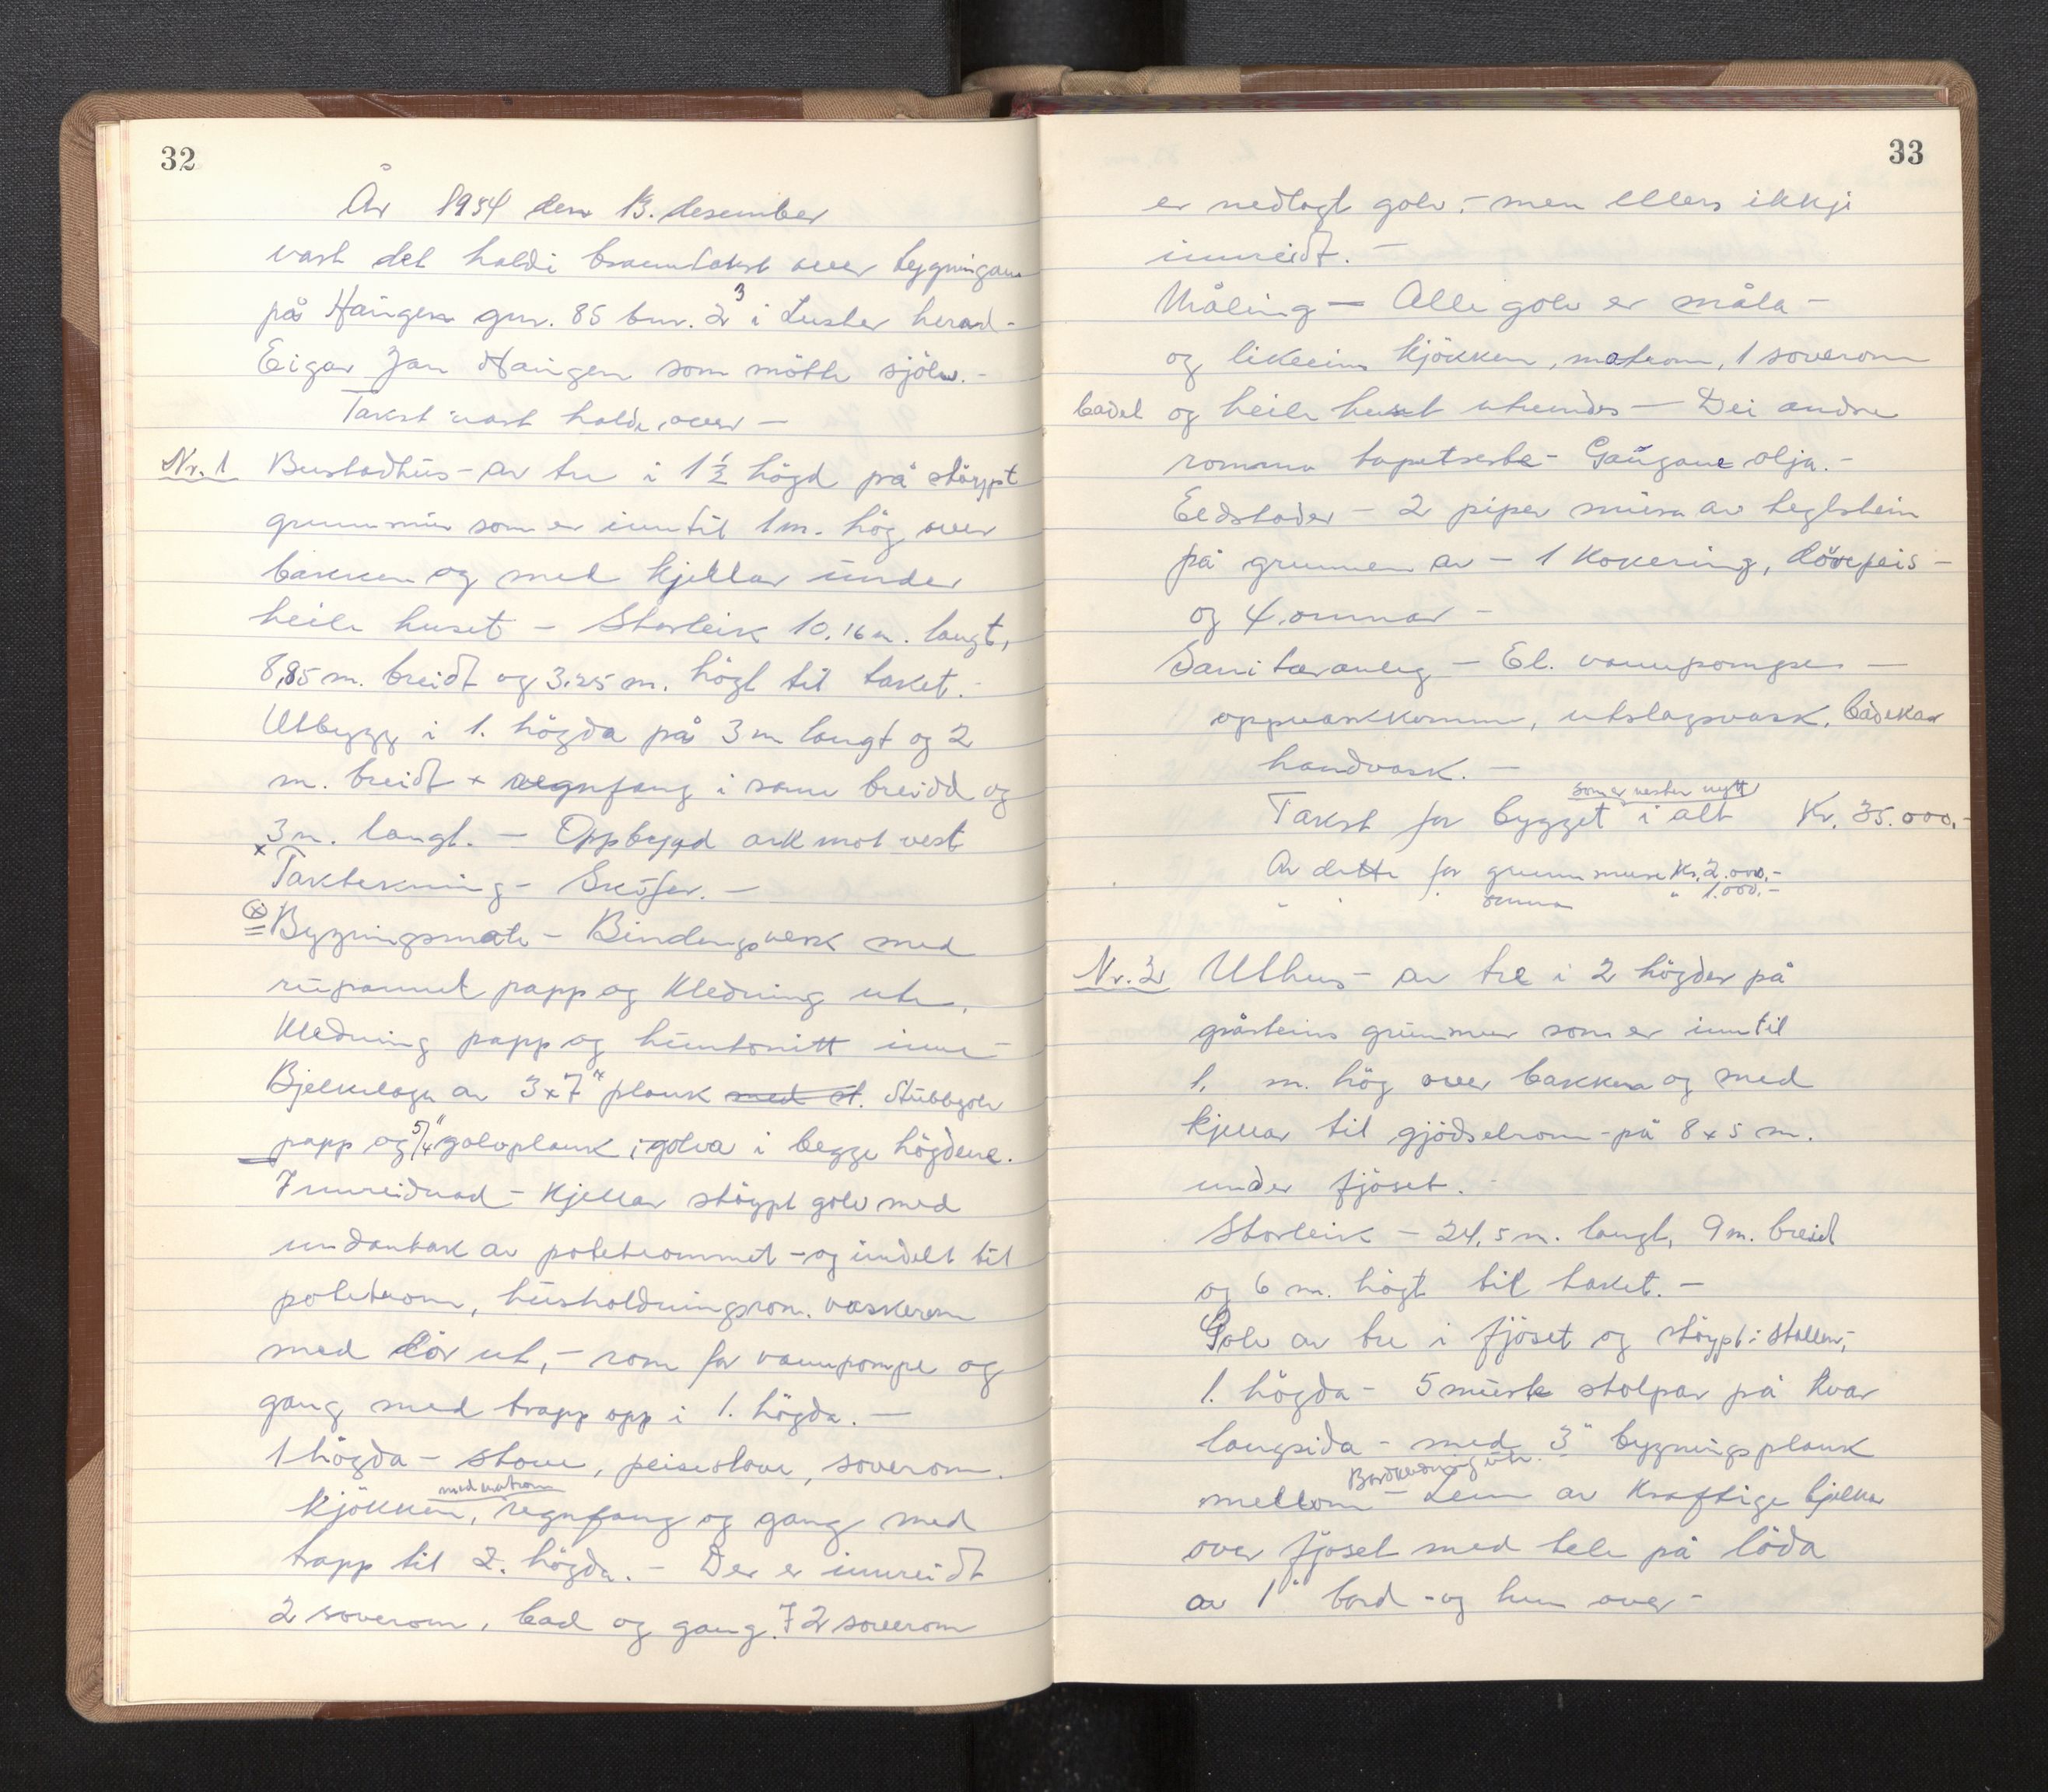 32
År 1954 den 13. desember
vart det haldi branntakst over bygningane
på Haugen gnr. 85 bnr. 2 3 i Luster herad -
Eigar Jan Haugen som møtte sjölv. -
Takst vart halde over —
Nr. 1 Bustadhus - av tre i 1 1/2 högd på stöypt
grunnmur som er inntil 1 m. hög over
bakken og med kjellar under
heile huset - Storleik 10.16 m. langt,
8,85 m. breidt og 3.25 m. högt til taket. -
Utbygg i 1. högda på 3 m langt og 2
m. breidt + regnfang i same breidd og
3 m. langt. — Oppbygd ark mot vest
x Taktekning - Skifer. —
(x) Bygningsmåte - Bindingsverk med
rupannel papp og kledning ute,
kledning papp og huntonitt inne -
Bjelkelaga av 3x7" plank med st. stubbgolv
papp og 5/4" golvplank i golva i begge högdene.
Innreidnad - Kjellar stöypt golv med
undantak av potetrommet - og inndelt til
potetrom, husholdningsrom. vaskerom
med dör ut, - rom for vannpompe og
gang med trapp opp i 1. högda. —
1 högda - stove, peisestove, soverom.
kjökken, med matrom regnfang og gang med
trapp til 2. högda. - Der er innreidt
2 soverom, bad og gang. I 2 soverom
33
er nedlagt golv, - men ellers ikkje
innreidt. —
Måling — Alle golv er måla -
og likeeins kjökken, matrom, 1 soverom
badet og heile huset utvendes — Dei andre
romma tapetserte - Gangane olja. -
Eldstader - 2 piper mura av teglstein
på grunnen av - 1 kokering, dövepeis -
og 4 omnar -
Sanitæranleg - El. vannpompe —
oppvaskkomm, utslagsvask, badekar
handvask. —
Takst for bygget som er nesten nytt i alt Kr. 35.000.-
Av dette for grunnmure Kr. 2.000,-
" " " omna " 1.000,-
Nr. 2 Uthus - av tre i 2 högder på
gråsteins grunnmur som er inntil
1. m. hög over bakken og med
kjellar til gjödselrom - på 8 x 5 m.
under fjöset. -
Storleik - 24,5 m. langt, 9 m. breidt
og 6 m. högt til taket. -
Golv av tre i fjöset og stöypt i stallen, -
1. högda - 5 murte stolpar på kvar
langsida - med 3" bygningsplank
mellom - Bordkledning ute. Lem av kraftige bjelkar
over fjöset med tele på löda
av 1" bord - og lem over -